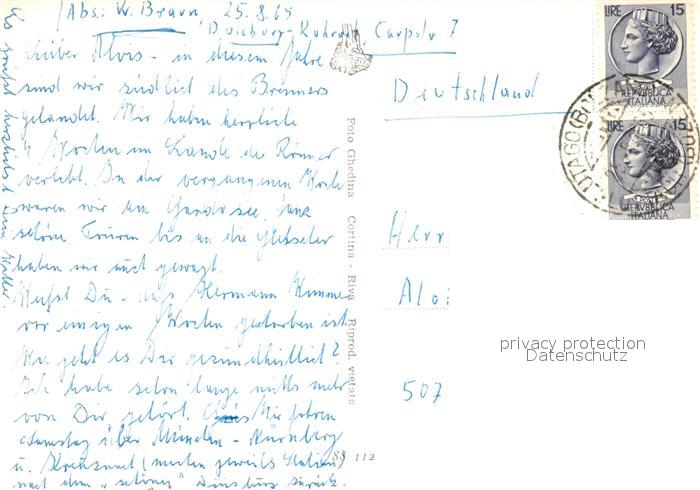 (Abs: W. Braun, 25.8.69
Duisburg-Ruhrort, Carpstr 7
Lieber Alois - in diesem Jahre
sind wir südlich des Brenners
gelandet. Wir haben herrliche
4 Wochen im Lande der Römer
verlebt. In der vergangenen Woche
waren wir am Gardasee.
schöne Touren bis an die Gletscher
haben wir auch gewagt.
Weißt Du - daß Hermann
vor einigen Wochen gestorben ist.
Wie geht es Dir gesundheitlich?
Ich habe schon lange nichts mehr
von Dir gehört. Wir fahren
Samstag über München - Nürnberg
u. (machen jeweils Station)
nach dem "schönen" Duisburg zurück.
Es grüßt herzlichst Dein
Foto Ghedina Cortina - Riva Riprod. vietata
88 112
Deutschland
Herr
Aloi
507
LIRE 15
REPVBBLICA
ITALIANA
LIRE 15
REPVBBLICA
ITALIANA
privacy protection
Datenschutz